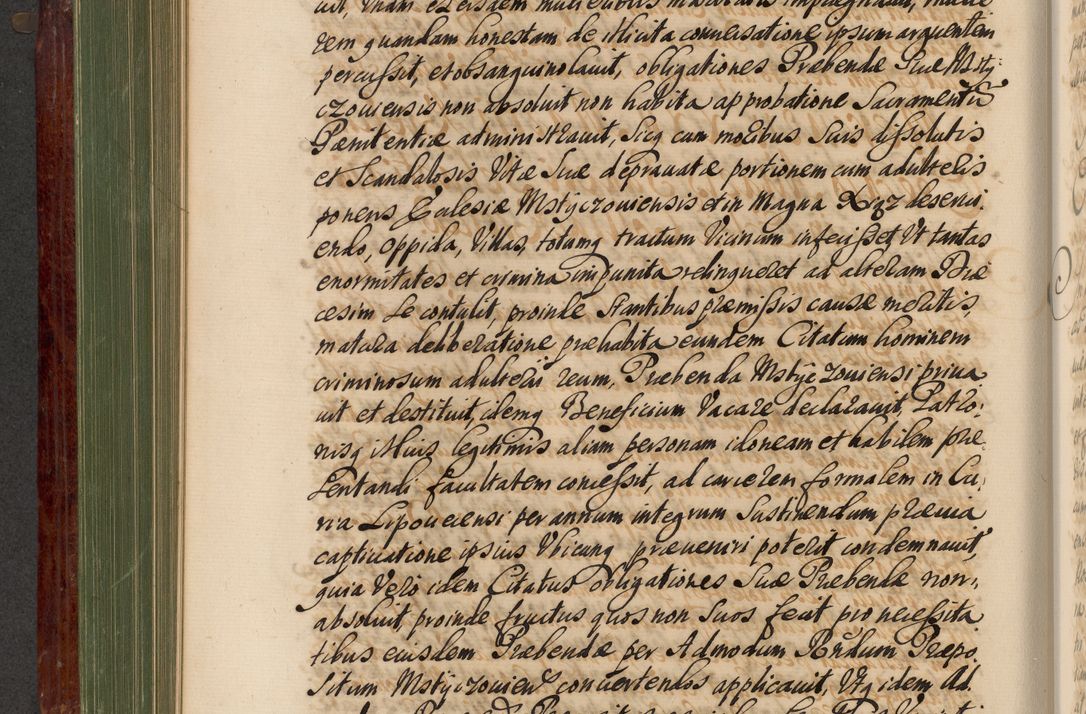 uit, Unam ex eisdem mulieribus
rem quandam honestam de illicita conuersatione ipsum arguentem
percussit, et obsanguinolauit, obligationes Præbendæ Suæ Msty-
czouiensis non absoluit non habita approbatione Sacramentũ
Pænitentiæ administrauit, Sicq cum moribus Suis dissolutis
et Scandalosis Vitæ Suæ deprauatæ portionem cum adulteris
ponens Ecclesiæ Mstyczouiensis et in Magna deserui,
endo, oppida, Villas, totumq tractum Vicinum infecisset, Vt tantas
enormitates et crimina impunita relinqueret ad alteram Diæ
cesim Se contulit, proinde Stantibus præmissis causæ meritis,
matura deliberatione præhabita eundem Citatum hominem
criminosum adulterii reum, Præbenda Mstyczouiensi priua
uit et destituit, idemq Beneficium Vacare declarauit, Patro:
nisq illius legitimis aliam personam idoneam et habilem præ-
Sentandi facultatem concessit, ad carcerem formalem in Cu,
ria Lipouecensi per annum integrum Sustinendum præuia
captiuatione ipsius Vbicunq præueniri poterit condemnauit,
quia Vero idem Citatus obligationes Suæ Præbendæ non,
absoluit, proinde fructus quos non Suos fecit pro necessita
tibus eiusdem Præbendæ per Admodum Rñdum Præpo,
Situm Mstyczouien conuertendos applicauit, Vtq idem Ad.